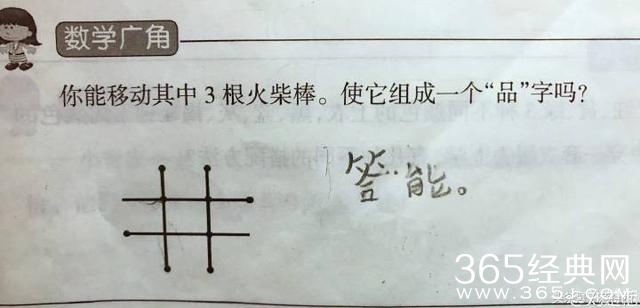 数学广角
你能移动其中3根火柴棒。使它组成一个“品”字吗？
答:能。
365经典网
www.365j.com